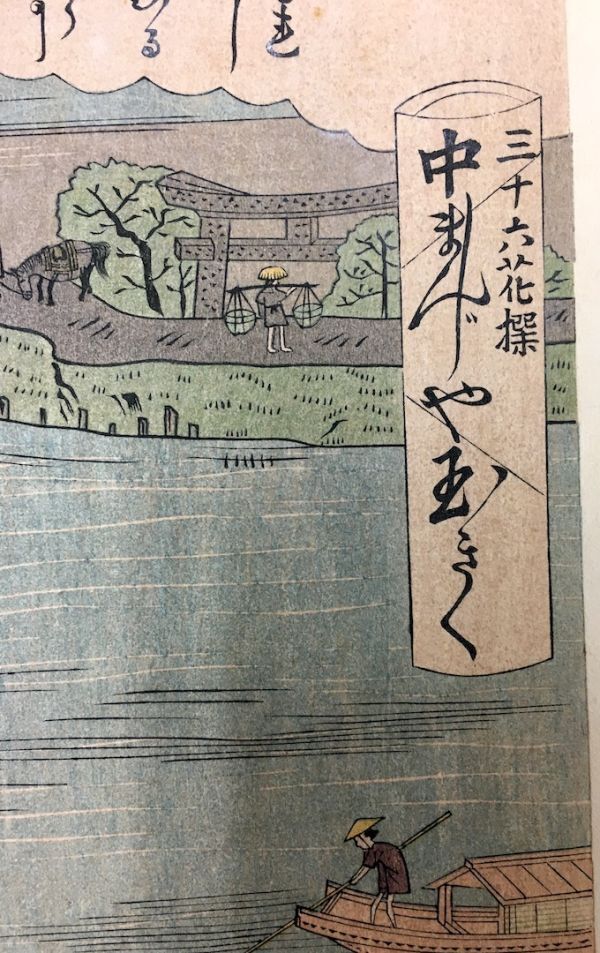 三十六花撰
中まんじや玉きく